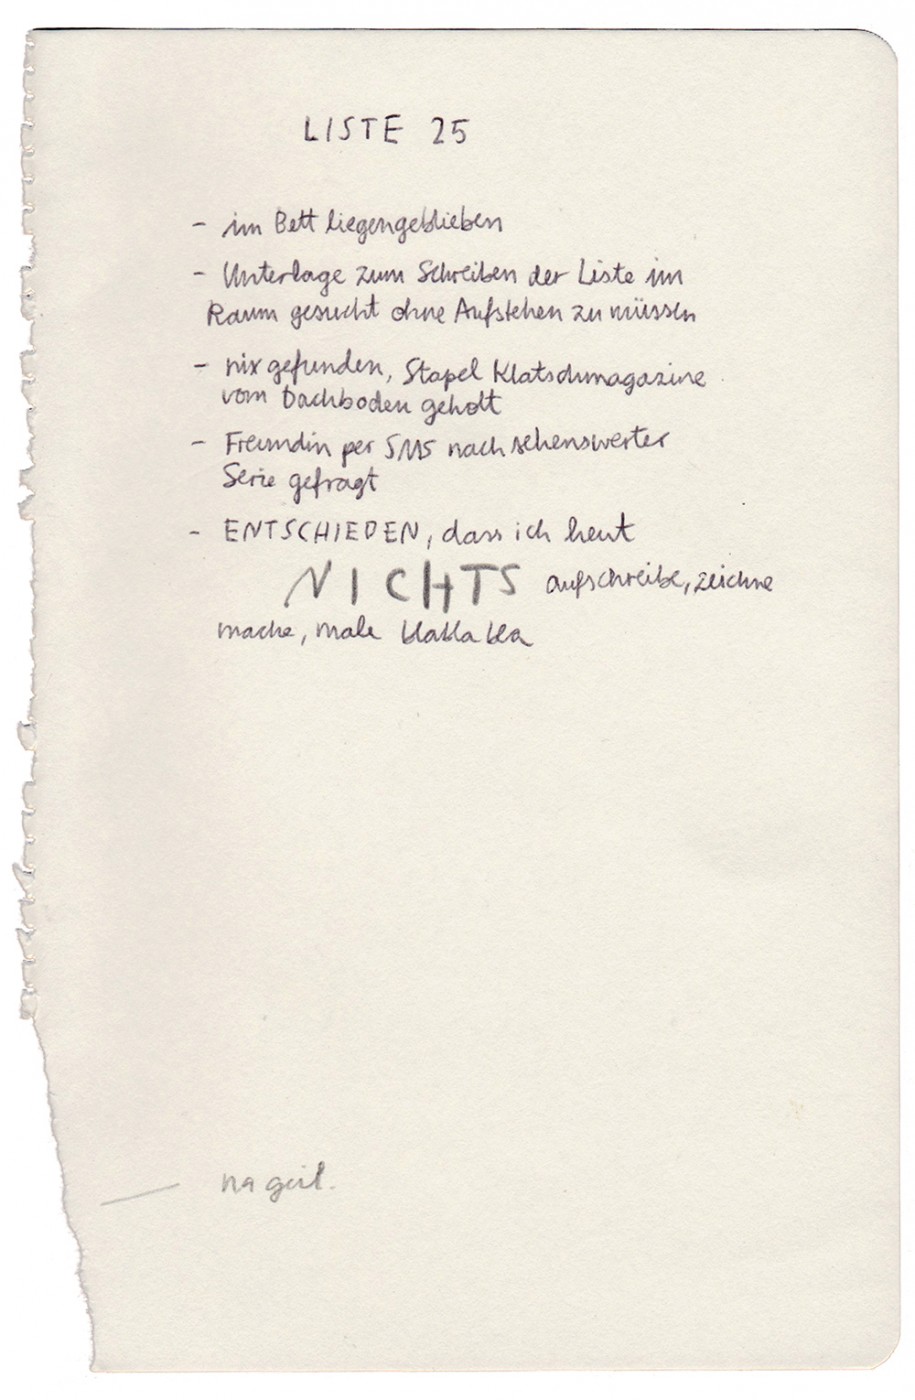 LISTE 25
- im Bett liegengeblieben
- Unterlage zum Schreiben der Liste im
Raum gesucht ohne Aufstehen zu müssen
- nix gefunden, Stapel Klatschmagazine
vom Dachboden geholt
- Freundin per SMS nach sehenswerter
Serie gefragt
- ENTSCHIEDEN, dass ich heut
NICHTS aufschreibe, zeichne
mache, male blablabla
— na geil.